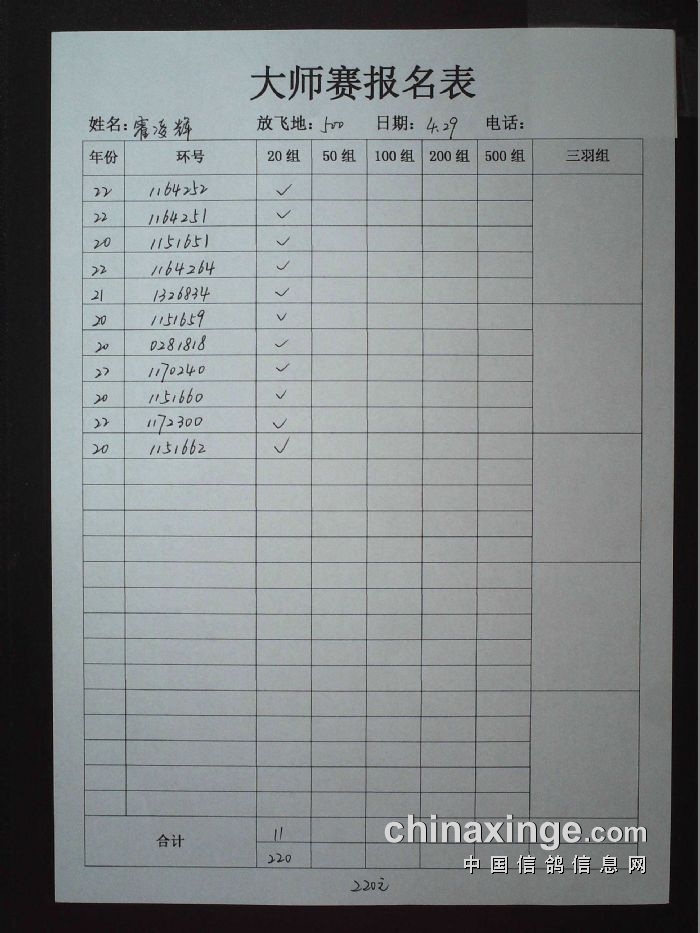 大师赛报名表
姓名：霍凌辉 放飞地：500 日期：4.29 电话：
年份 环号 20组 50组 100组 200组 500组 三羽组
22 1164252 ✓
22 1164251 ✓
20 1151651 ✓
22 1164264 ✓
21 1326834 ✓
20 1151659 ✓
20 0281818 ✓
22 1170240 ✓
20 1151660 ✓
22 1172300 ✓
20 1151662 ✓
合计 11
220
220元
chinaxinge.com
中国信鸽信息网